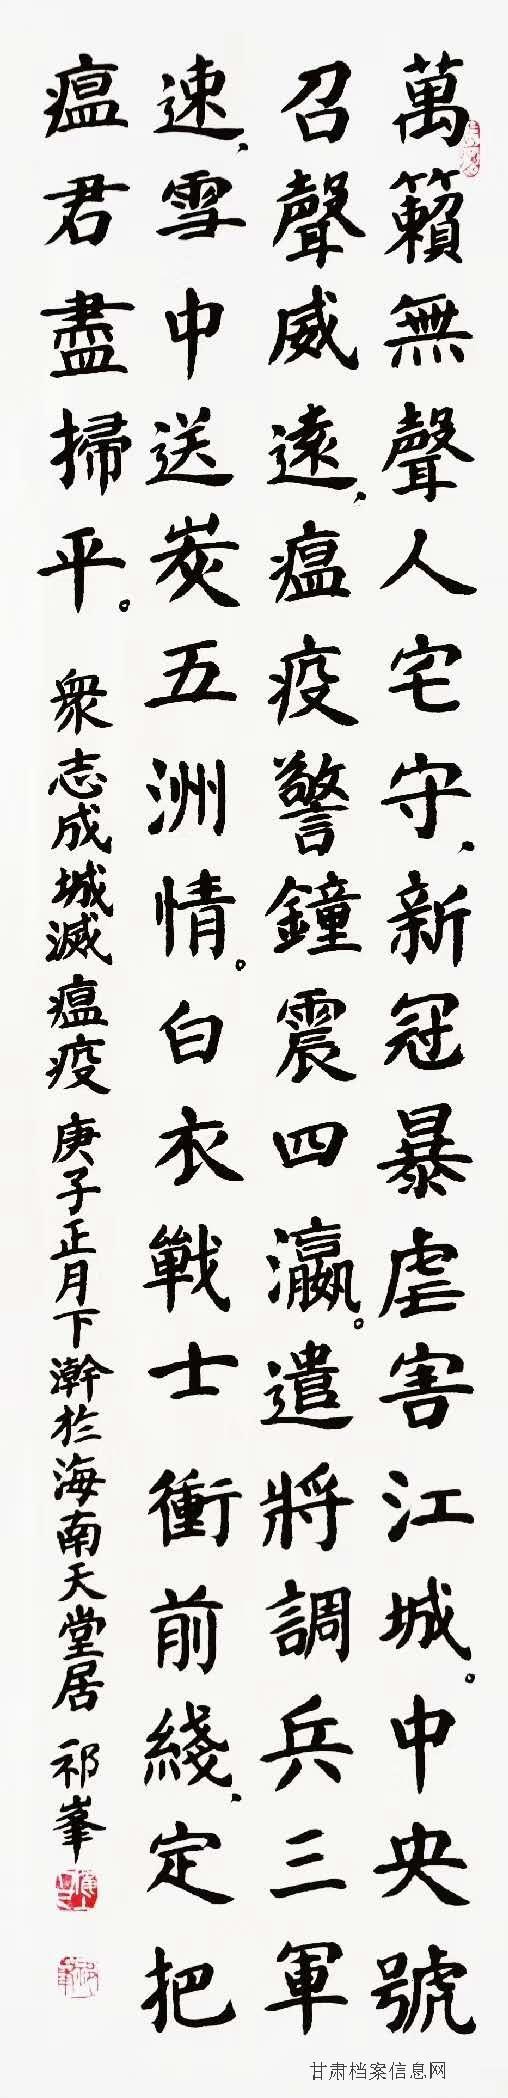 萬籟無聲人宅守，新冠暴虐害江城。中央號
召聲威遠，瘟疫警鐘震四瀛。遣將調兵三軍
速，雪中送炭五洲情。白衣戰士衝前綫，定把
瘟君盡掃平。 衆志成城滅瘟疫 庚子正月下瀚於海南天堂居 祁峯
甘肃档案信息网